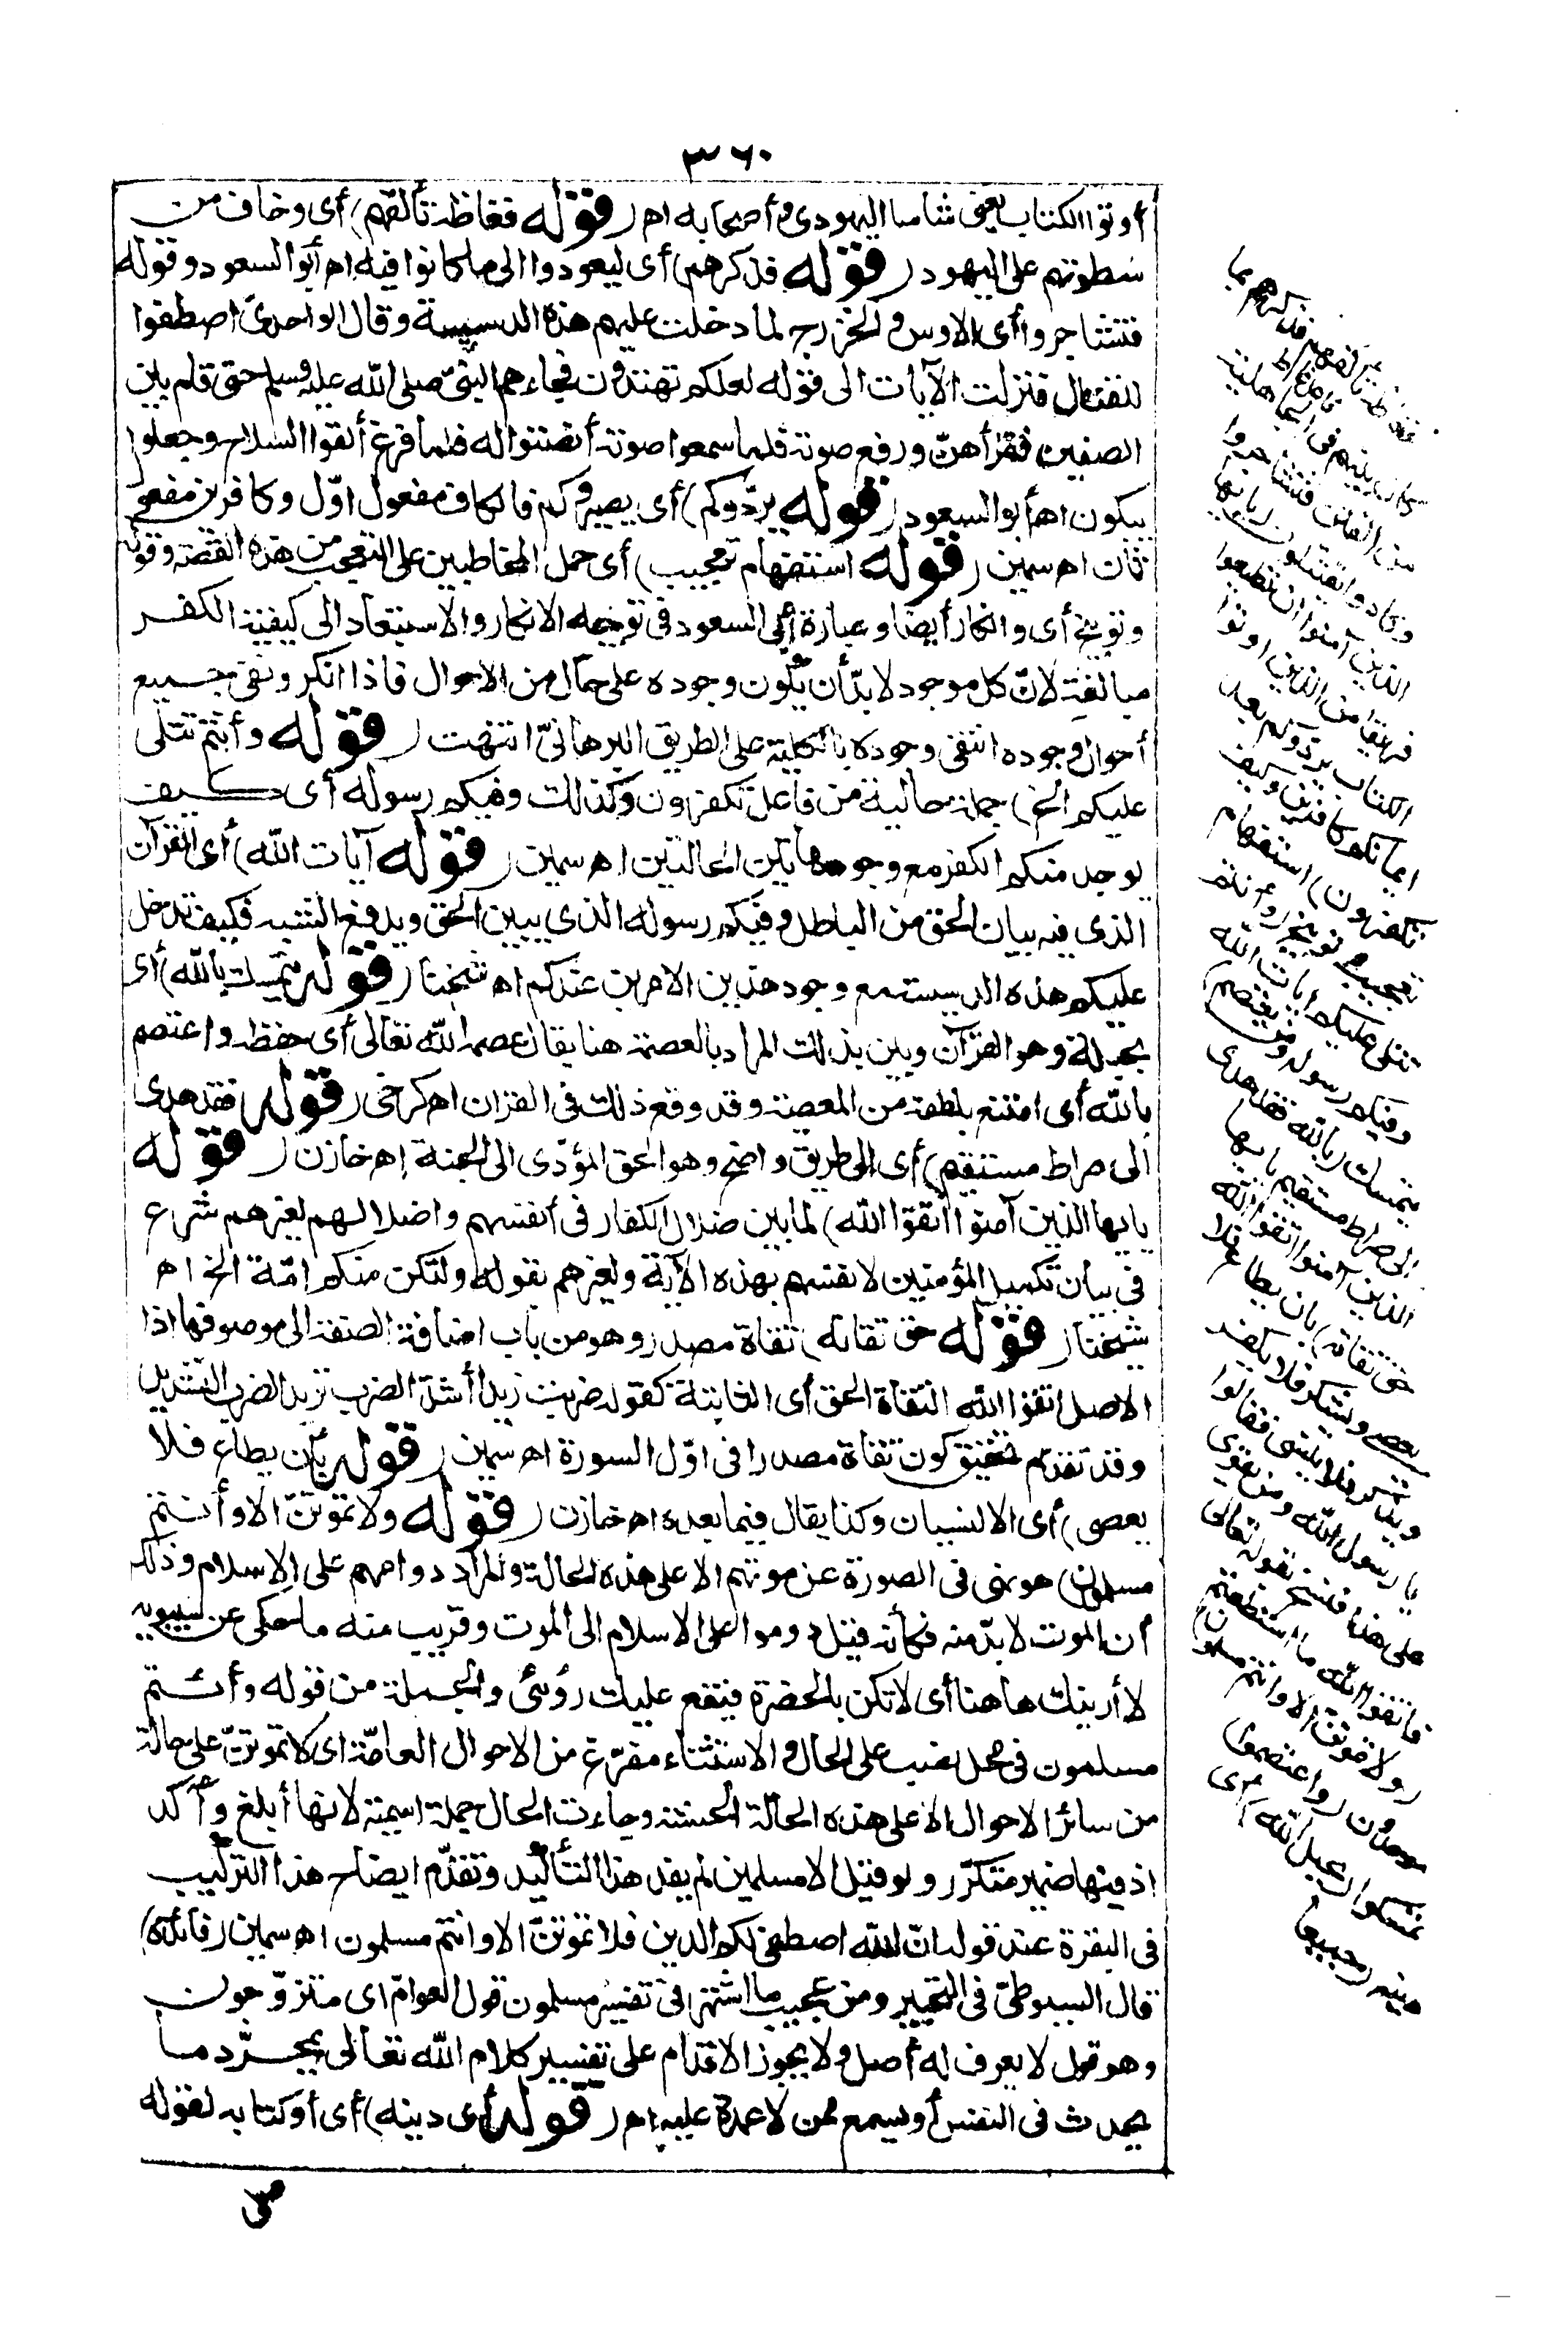 ٣٦٠
أوتوا الكتاب يعنى شاسا اليهودى وأصحابه اه (قوله فغاظه تألفهم) أى وخاف من
سطوتهم على اليهود (قوله فذكرهم) أى ليعودوا الى ما كانوا فيه اه أبو السعود وقوله
فتشاجروا أى الاوس والخزرج لما دخلت عليهم هذه الدسيسة وقال الواحدىّ اصطفوا
للقتال فنزلت الآيات الى قوله لعلكم تهتدون فجاءهم النبىّ صلى الله عليه وسلم حتى قام بين
الصفين فقرأهنّ ورفع صوته فلما سمعوا صوته أنصتوا له فلما فرغ ألقوا السلاح وجعلوا
يبكون اه أبو السعود (قوله يردّوكم) أى يصيروكم فالكاف مفعول اوّل وكافرين مفعول
ثان اه سمين (قوله استفهام تعجيب) أى حمل المخاطبين على التعجب من هذه القصة وقوله
وتوبيخ أى وانكار أيضا وعبارة أبى السعود فى توجيه الانكار والاستبعاد الى كيفية الكفر
مبالغة لانّ كل موجود لا بدّ أن يكون وجوده على حال من الاحوال فاذا انكر ونفى جميع
أحوال وجوده انتفى وجوده بالكلية على الطريق البرهانىّ انتهت (قوله وأنتم تتلى
عليكم الخ) جملة حالية من فاعل تكفرون وكذلك وفيكم رسوله أى كيف
يوجد منكم الكفر مع وجود هاتين الحالتين اه سمين (قوله آيات الله) أى القرآن
الذى فيه بيان الحق من الباطل وفيكم رسوله الذى يبين الحق ويدفع الشبه فكيف تدخل
عليكم هذه الدسيسة مع وجود هذين الامرين عندكم اه شيخنا (قوله يتمسك بالله) أى
بحبله وهو القرآن وبين بذلك المراد بالعصمة هنا يقال عصمه الله تعالى أى حفظه واعتصم
بالله أى امتنع بلطفه من المعصية وقد وقع ذلك فى القران اه كرخى (قوله فقد هدى
الى صراط مستقيم) أى الى طريق واضح وهو الحق المؤدّى الى الجنة اه خازن (قوله
يا يها الذين آمنوا اتقوا الله) لما بين ضلال الكفار فى أنفسهم واضلالهم لغيرهم شرع
فى بيان تكميل المؤمنين لانفسهم بهذه الآية ولغيرهم بقوله ولتكن منكم امّة الخ اه
شيخنا (قوله حق تقاته) تقاة مصدر وهو من باب اضافة الصفة الى موصوفها اذا
الاصل اتقوا الله التقاة الحق أى الثابتة كقوله ضربت زيدا أشدّ الضرب تريد الضرب الشديد
وقد تقدّم تحقيق كون تقاة مصدرا فى اوّل السورة اه سمين (قوله بأن يطاع فلا
يعصى) أى الا لنسيان وكذا يقال فيما بعده اه خازن (قوله ولا تموتنّ الا وأنتم
مسلمون) هو نهى فى الصورة عن موتهم الا على هذه الحالة والمراد دوامهم على الاسلام وذلك
أن الموت لا بدّ منه فكأنه قيل دوموا على الاسلام الى الموت وقريب منه ما حكى عن سيبويه
لا أرينك هاهنا أى لا تكن بالحضرة فيقع عليك رؤيتى والجملة من قوله وأنتم
مسلمون فى محل نصب على الحال والاستثناء مفرّغ من الاحوال العامّة اى لا تموتنّ على حالة
من سائر الاحوال الا على هذه الحالة الحسنة وجاءت الحال جملة اسمية لانها أبلغ وآكد
اذ فيها ضمير متكرّر ولو قيل الا مسلمين لم يفد هذا التأكيد وتقدّم ايضاح هذا التركيب
فى البقرة عند قوله انّ الله اصطفى لكم الدين فلا تموتنّ الا وانتم مسلمون اه سمين (فائدة)
قال السيوطىّ فى التحبير ومن عجيب ما اشتهر فى تفسير مسلمون قول العوامّ اى متزوّجون
وهو قول لا يعرف له أصل ولا يجوز الاقدام على تفسير كلام الله تعالى بمجرّد ما
يحدث فى النفس أو يسمع ممن لا عمدة عليه اه (قوله أى دينه) أى أو كتابه لقوله
فغاظه تألفهم فذكرهم بما
كان بينهم فى الجاهلية
من الفتن فتشاجروا
وكادوا يقتتلون (يا يها
الذين آمنوا ان تطيعوا
فريقا من الذين اوتوا
الكتاب يردّوكم بعد
ايمانكم كافرين وكيف
تكفرون) استفهام
تعجيب وتوبيخ (وانتم
تتلى عليكم ايات الله
وفيكم رسوله ومن يعتصم)
يتمسك (بالله فقد هدى
الى صراط مستقيم يا يها
الذين آمنوا اتقوا الله
حق تقاته) بان يطاع فلا
يعصى ويشكر فلا يكفر
ويذكر فلا ينسى فقالوا
يا رسول الله ومن يقوى
على هذا فنسخ بقوله تعالى
فاتقوا الله ما استطعتم
(ولا تموتنّ الا وانتم مسلمون)
موحدون (واعتصموا)
تمسكوا (بحبل الله) أى
دينه (جميعا